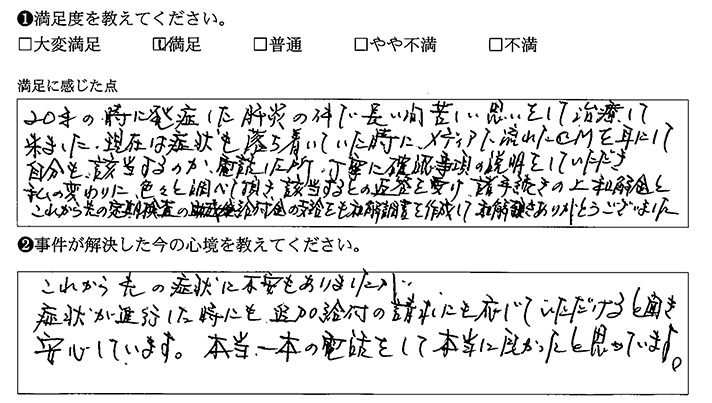 ❶満足度を教えてください。
□大変満足 ☑満足 □普通 □やや不満 □不満
満足に感じた点
20才の時に発症した肝炎の件で長い間苦しい思いをして治療して
来ました。現在は症状も落ち着いていた時に、メディアで流れたCMを耳にして
自分も該当するのか、電話した所、丁寧に確認事項の説明をしていただき
私の変わりに色々と調べて頂き該当するとの返答を受け諸手続きの上和解金と
これから先の定期検査の給付金の支給をも和解調書を作成して和解頂きありがとうございました
❷事件が解決した今の心境を教えてください。
これから先の症状に不安もありましたが、
症状が進行した時にも追加給付の請求にも応じていただけると聞き
安心しています。本当、一本の電話をして本当に良かったと思っています。